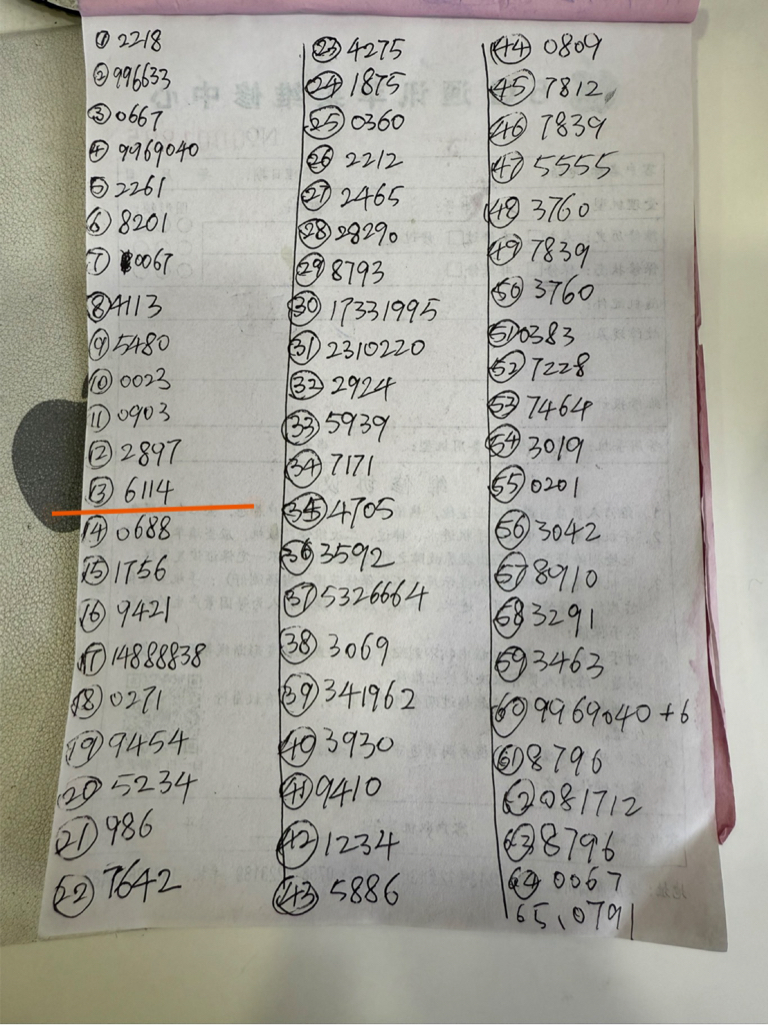 ① 2218
② 996633
③ 0667
④ 9969040
⑤ 2261
⑥ 8201
⑦ 0067
⑧ 4113
⑨ 5480
⑩ 0023
⑪ 0903
⑫ 2897
⑬ 6114
⑭ 0688
⑮ 1756
⑯ 9421
⑰ 14888838
⑱ 0271
⑲ 9454
⑳ 5234
㉑ 986
㉒ 7642
㉓ 4275
㉔ 1875
㉕ 0360
㉖ 2212
㉗ 2465
㉘ 28290
㉙ 8793
㉚ 17331995
㉛ 2310220
㉜ 2924
㉝ 5939
㉞ 7171
㉟ 4705
㊱ 3592
㊲ 5326664
㊳ 3069
㊴ 341962
㊵ 3930
㊶ 9410
㊷ 1234
㊸ 5886
㊹ 0809
㊺ 7812
㊻ 7839
㊼ 5555
㊽ 3760
㊾ 7839
㊿ 3760
51 0383
52 7228
53 7464
54 3019
55 0201
56 3042
57 8910
58 3291
59 3463
60 9969040+6
61 8796
62 081712
63 8796
64 0067
65、0791